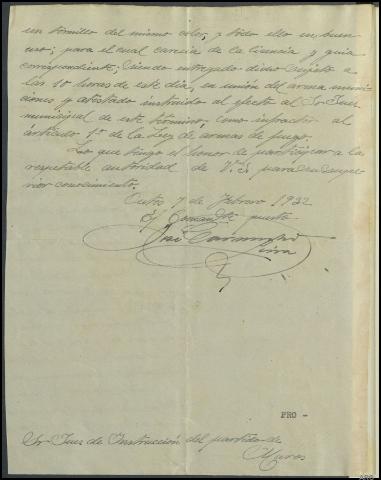 un tornillo del mismo color, y todo ello en buen
uso; para el cual carecia de la licencia y guia
correspondiente; siendo entregado dicho sujeto a
las 10 horas de este dia, en union del arma muni-
ciones y atestado instruido al efecto al Sr Juez
municipal de este término, como infractor al
artículo 1º de la Ley de armas de fuego.
Lo que tengo el honor de participar a la
respetable autoridad de V.S. para su supe-
rior conocimiento.
Outes 7 de Febrero 1932
El Comandte puesto
José
PRO -
Sr Juez de Instrucción del partido de
Muros